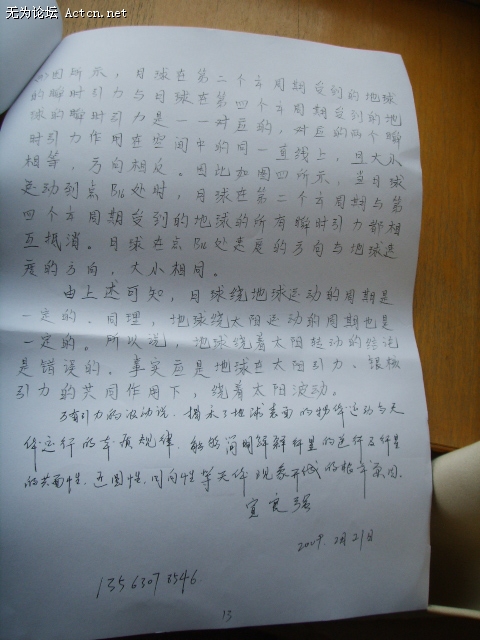 无为论坛 Actcn.net
图所示，月球在第二个¼周期受到的地球
的瞬时引力与月球在第四个¼周期受到的地
球的瞬时引力是一一对应的，对应的两个瞬
时引力作用在空间中的同一直线上，且大小
相等，方向相反。因此如图四所示，当月球
运动到点B16处时，月球在第二个¼周期与第
四个¼周期受到的地球的所有瞬时引力都相
互抵消。月球在点B16处速度的方向与地球速
度的方向，大小相同。
由上述可知，月球绕地球运动的周期是
一定的。同理，地球绕太阳运动的周期也是
一定的。所以说，地球绕着太阳转动的结论
是错误的。事实应是地球在太阳引力、银核
引力的共同作用下，绕着太阳波动。
万有引力的波动说，揭示了地球表面的物体运动与天
体运行的本质规律，能够简明解释行星的逆行及行星
的共面性、近圆性、同向性等天体现象形成的根本原因。
宣良强
2009.2月21日
13563078546
13